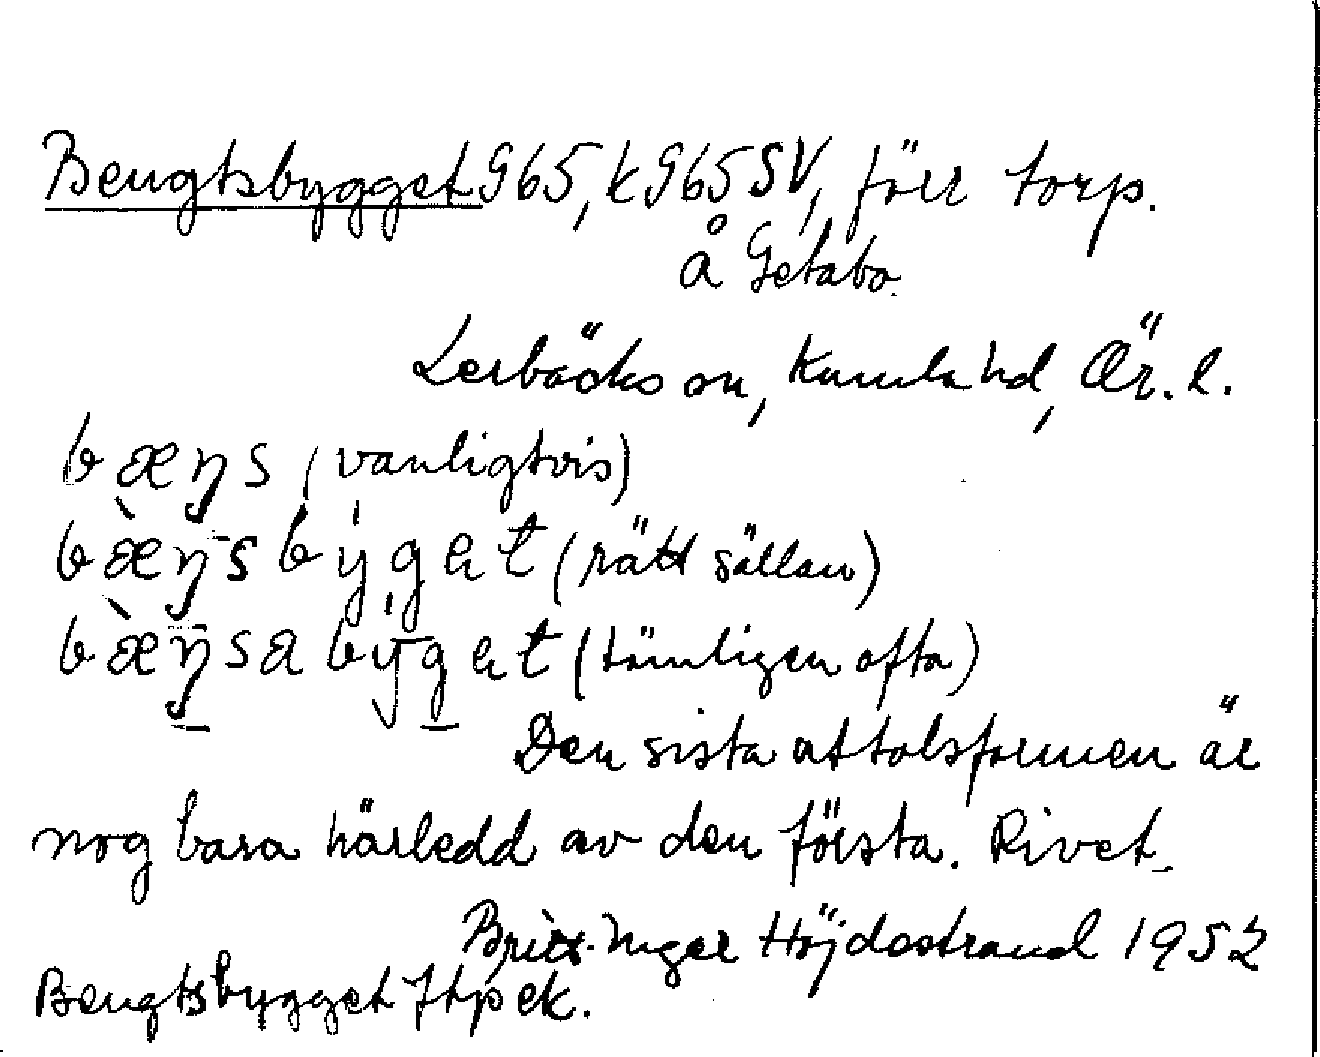 Bengtsbygget 965, k 965 SV, förr torp.
å Getabo.
Lerbäcks sn, Kumla hd, Ör. l.
bæŋs (vanligtvis)
bæ̀ŋsby̍gət (rätt sällan)
bæ̀ŋsaby̍gət (tämligen ofta)
Den sista uttalsformen är
nog bara härledd av den första. Rivet.
Britt-Inger Höjdestrand 1952
Bengtsbygget f tp ek.